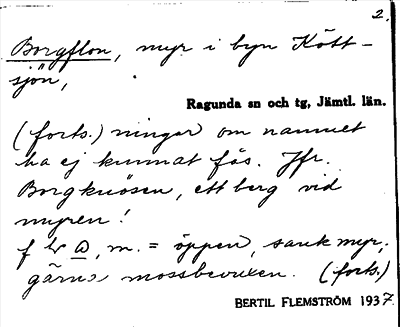 2.
Borgflon, myr i byn Kött-
sjön,
Ragunda sn och tg, Jämtl. län.
(forts.) ningar om namnet
ha ej kunnat fås. Jfr.
Borgknösen, ett berg vid
myren!
öppen, sank myr,
gärna mossbevuxen. (forts.)
BERTIL FLEMSTRÖM 1937.